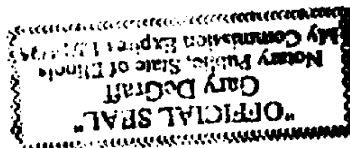 "OFFICIAL SEAL"
Gary DeGraff
Notary Public, State of Illinois
My Commission Expires